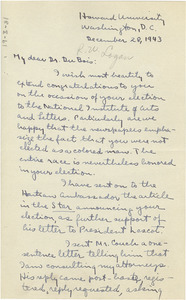 Howard University
Washington, D.C.
December 28, 1943
R.W. Logan
My dear Dr. Du Bois:
I wish most heartily to
extend congratulations to you
on the occasion of your election
to the National Institute of Arts
and Letters. Particularly are we
happy that the newspapers empha-
size the fact that you were not
elected as a colored man. The
entire race is nevertheless honored
in your election.
I have sent on to the
Haitian ambassador the article
in the Star announcing your
election, as further support of
his letter to President Lescot.
I sent Mr. Couch a one-
sentence letter telling him that
I am consulting my attorneys.
His reply came post-haste, regis-
tered, reply requested, asking